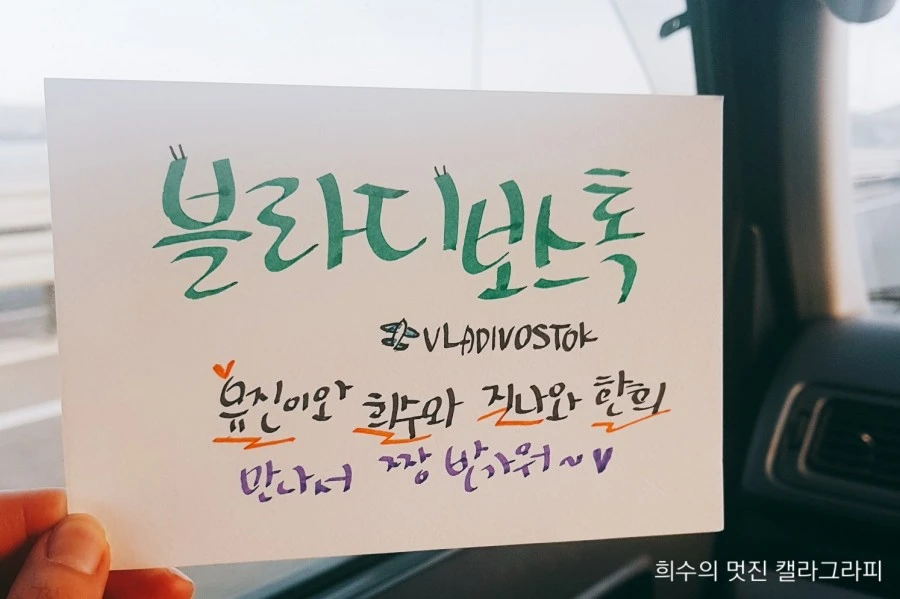 블라디보스톡
VLADIVOSTOK
유진이와 희수와 지나와 한희
만나서 짱 반가워~♥
희수의 멋진 캘라그라피